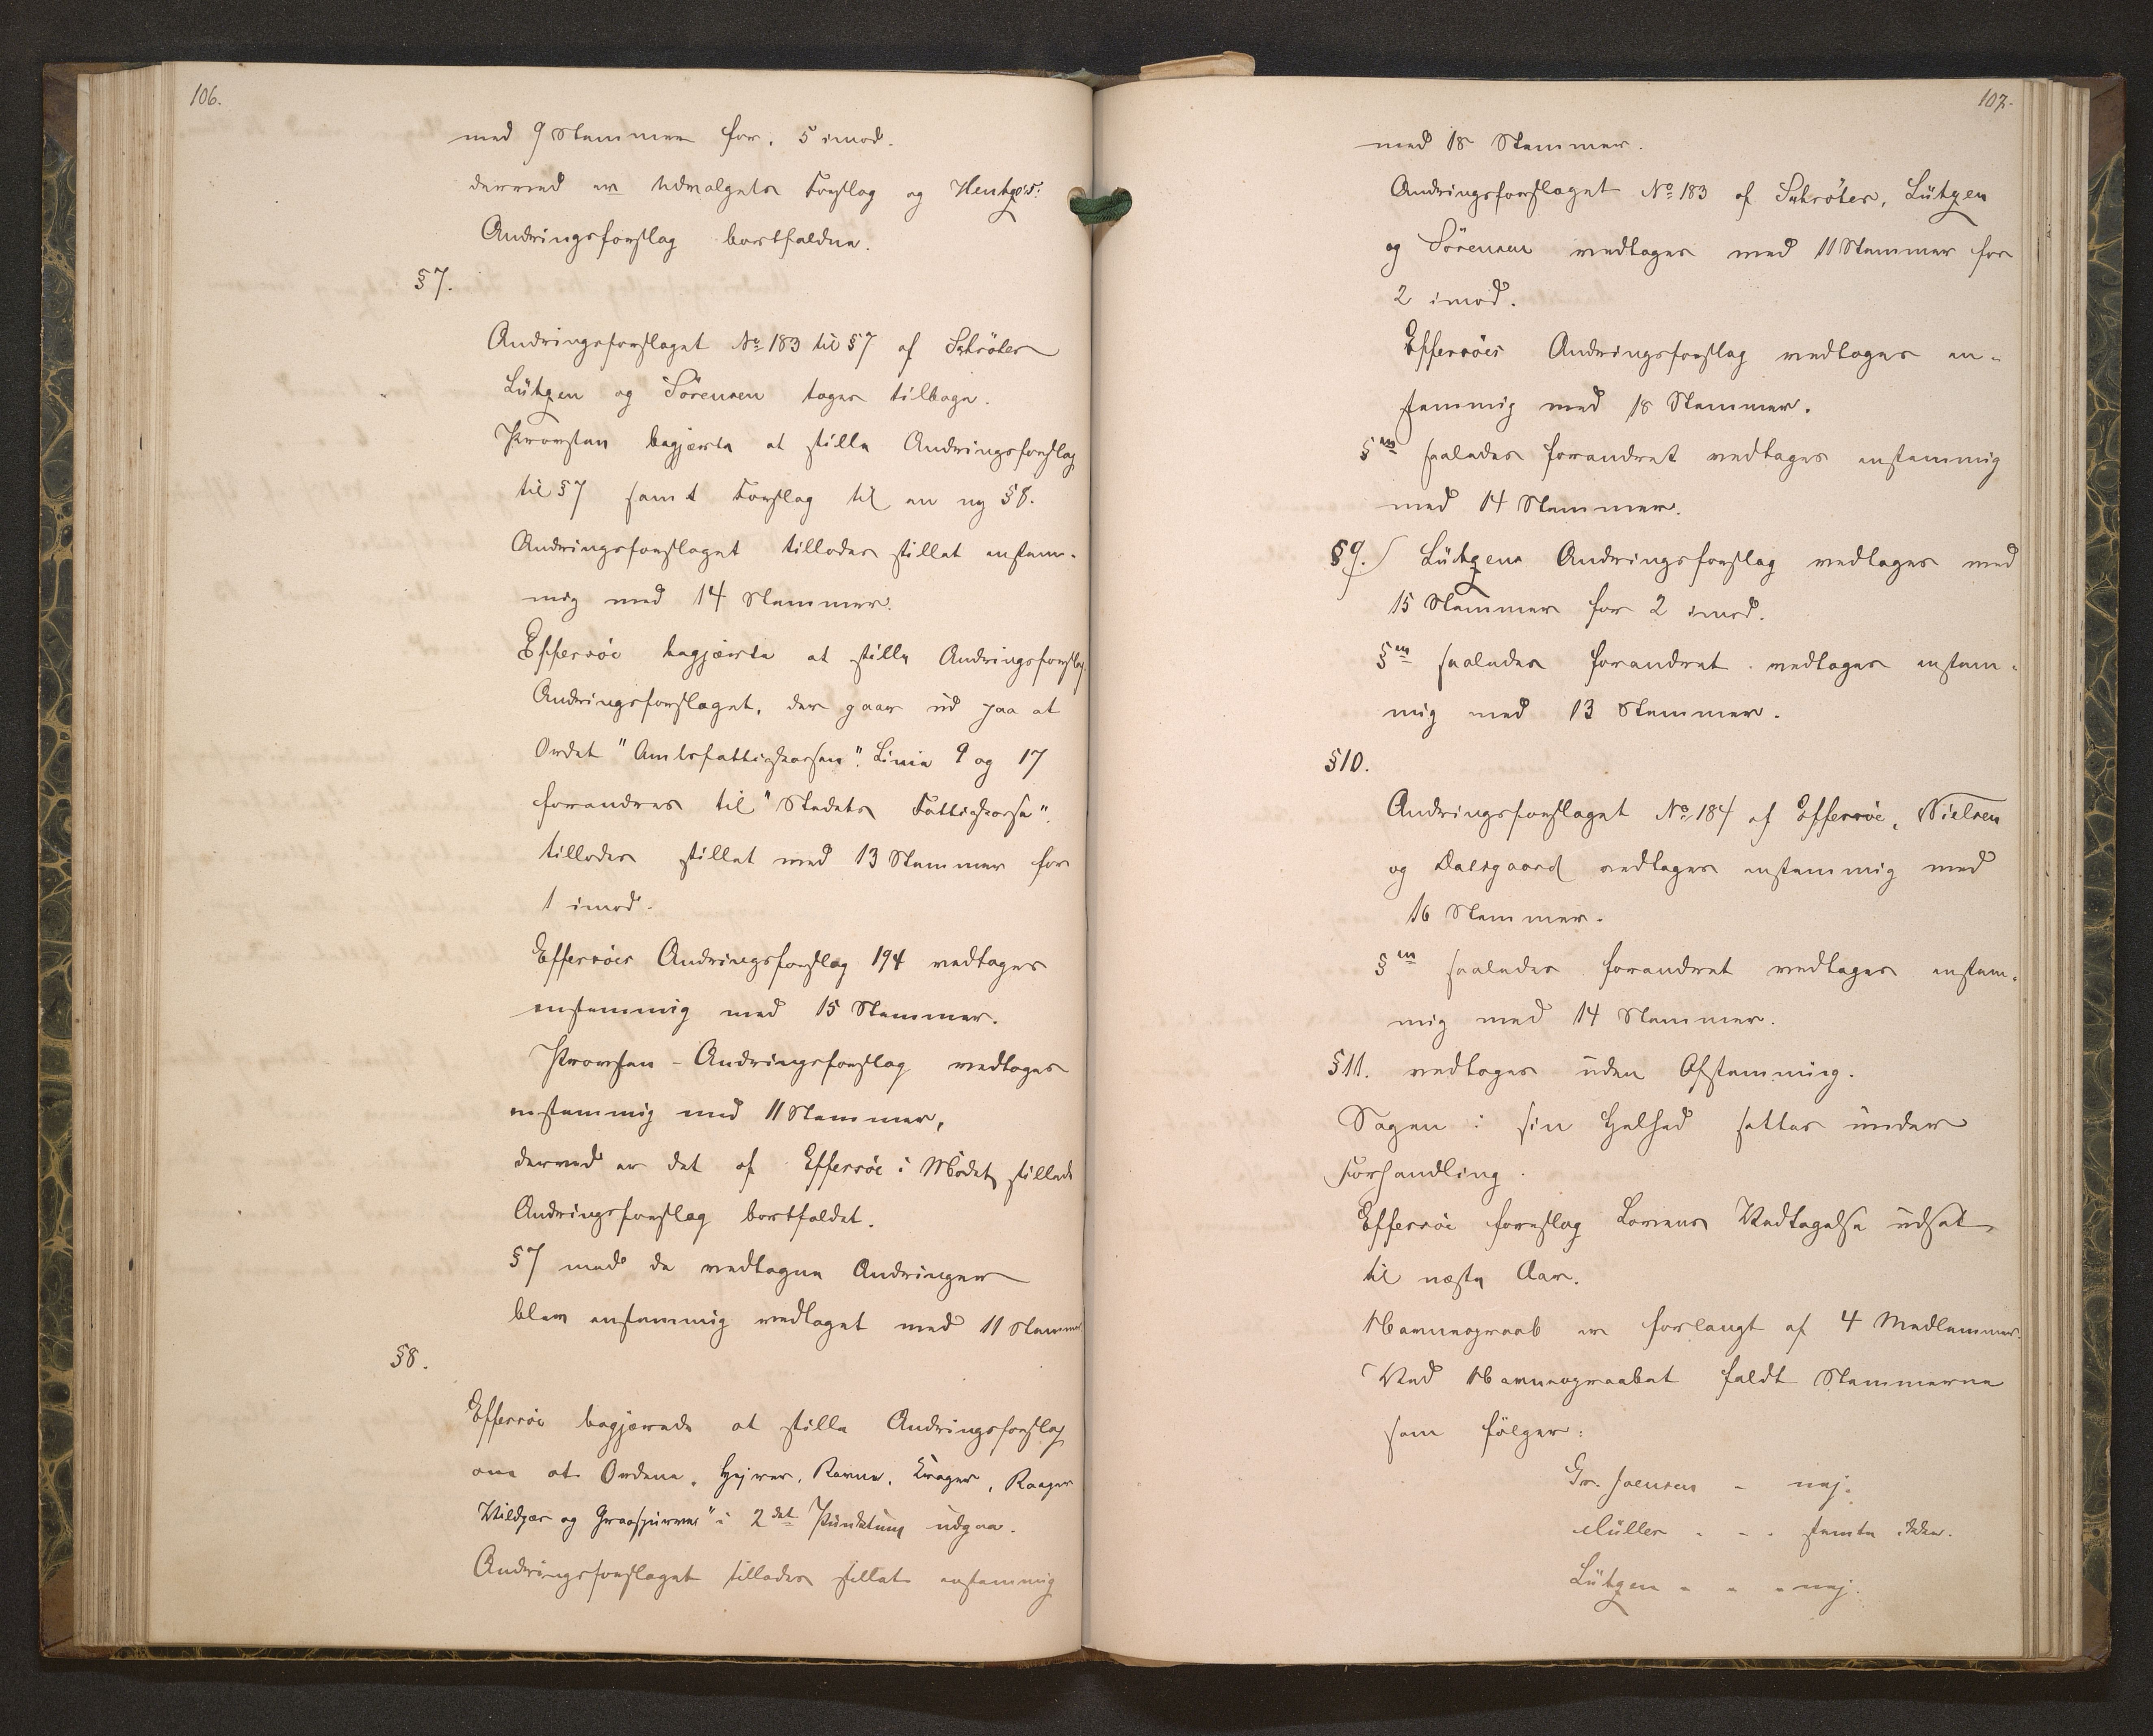 106.
med 9 Stemmer for, 5 imod.
dermed er Udvalgets Forslag og Hentzes:
Ændringsforslag bortfaldne.
§7.
Ændringsforslaget No 183 til §7 af Schröter
Lützen og Sörensen tages tilbage.
Provsten begjærte at stille Ændringsforslag
til §7 samt Forslag til en ny §8.
Ændringsforslaget tillodes stillet enstem-
mig med 14 Stemmer.
Effersöe begjærte at stille Ændringsforslag.
Ændringsforslaget, der gaar ud paa at
Ordet "Amtsfattigkassen". Linie 9 og 17
forandres til "Stedets Fattigkasse".
tillodes stillet med 13 Stemmer for
1 imod.
Effersöes Ændringsforslag 194 vedtages
enstemmig med 15 Stemmer.
Provsten - Ændringsforslag vedtages
enstemmig med 11 Stemmer,
dermed er det af Effersöe i Mödet stillede
Ændringsforslag bortfaldet.
§7 med de vedtagne Ændringer
blev enstemmig vedtaget med 11 Stemmer
§8.
Effersöe begjærede at stille Ændringsforslag
om at Ordene, Hejrer, Ravne, Krager, Raager
Vildgæs og Graaspurve" i 2det Punktum udgaa.
Ændringsforslaget tillodes stillet enstemmig
107.
med 18 Stemmer.
Ændringsforslaget No 183 af Schröter, Lützen
og Sörensen vedtages med 11 Stemmer for
2 imod.
Effersöes Ændringsforslag vedtages en-
stemmig med 18 Stemmer.
§en saaledes forandret vedtages enstemmig
med 14 Stemmer.
§9. Lützens Ændringsforslag vedtages med
15 Stemmer for 2 imod.
§en saaledes forandret vedtages enstem-
mig med 13 Stemmer.
§10.
Ændringsforslaget No 184 af Effersöe, Nielsen
og Dalsgaard vedtages enstemmig med
16 Stemmer.
§en saaledes forandret vedtages enstem-
mig med 14 Stemmer.
§11. vedtages uden Afstemning.
Sagen i sin Helhed sattes under
Forhandling.
Effersöe foreslog Lovens Vedtagelse udsat
til næste Aar.
Navneopraab er forlangt af 4 Medlemmer.
Ved Navneopraabet faldt Stemmerne
som fölger:
Gr. Joensen - nej.
Müller - - - stemte ikke.
Lützen - - - nej.